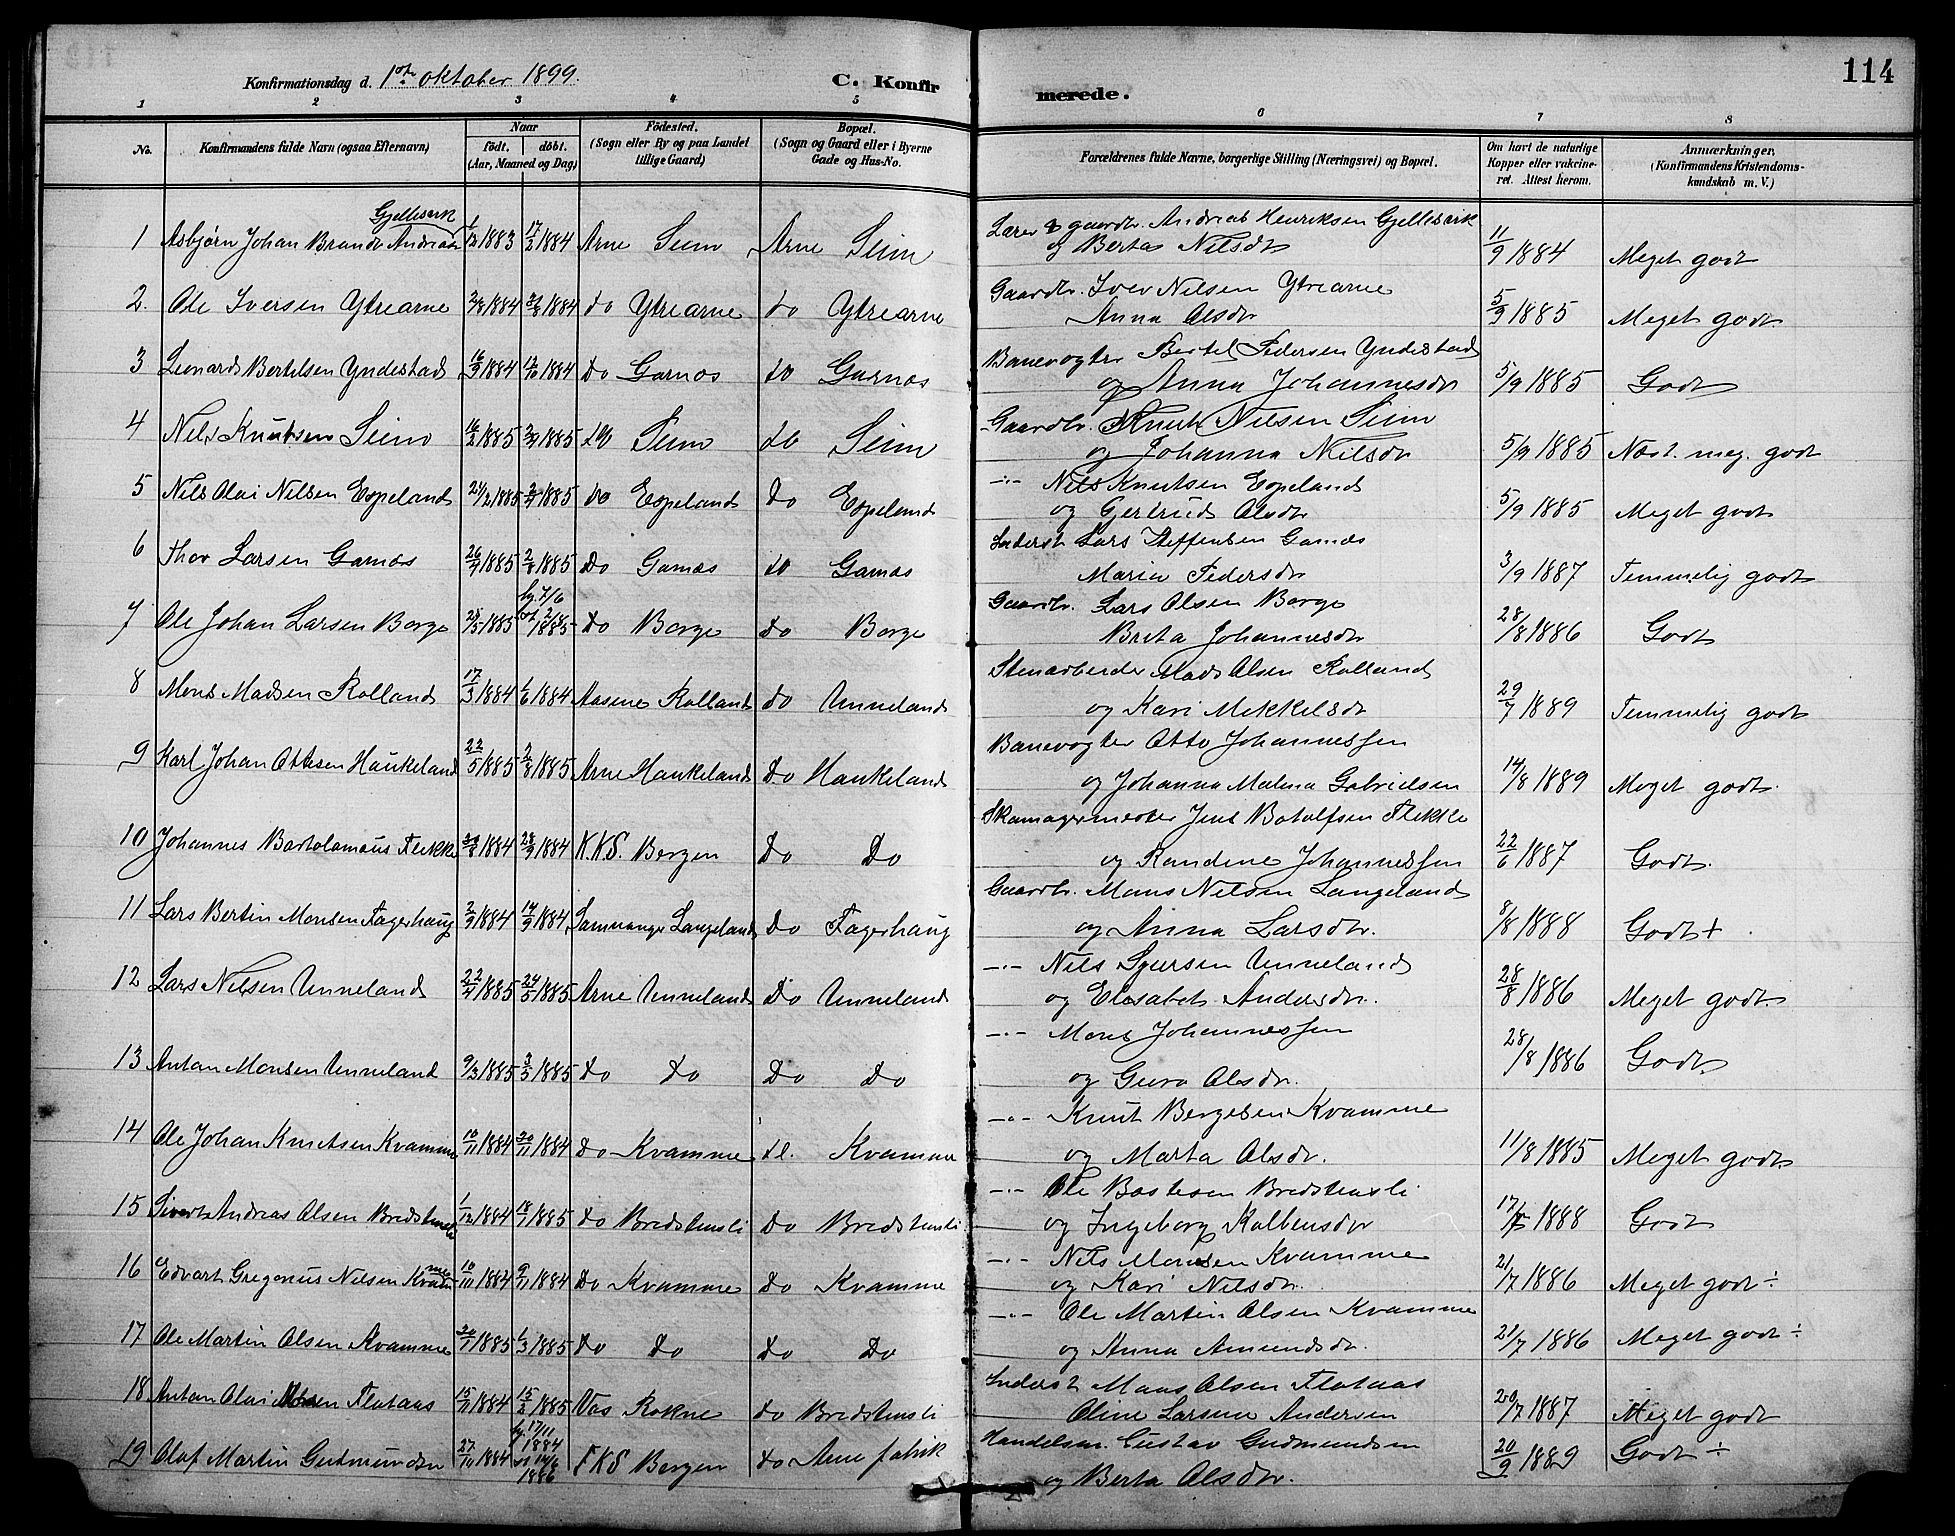 114
Konfirmationsdag d. 1ste oktober 1899. C. Konfirmerede.
1 2 3 4 5 6 7 8
No. Konfirmandens fulde Navn (ogsaa Efternavn) Naar födt. döbt. (Aar, Maaned og Dag) Födested. (Sogn eller By og paa Landet tillige Gaard) Bopæl. (Sogn og Gaard eller i Byerne Gade og Hus-No. Forældrenes fulde Navne, borgerlige Stilling (Næringsvei) og Bopæl. Om havt de naturlige Kopper eller vakcineret. Attest herom. Anmærkninger, (Konfirmandens Kristendomskundskab m. V.)
1 Asbjørn Johan Brandt Andreas Gjellesvik 1883 17/2 1884 Arne Seim Arne Seim Lærer & gaardbr. Andreas Henriksen Gjellesvik og Berta Nilsdr 11/9 1884 Meget godt
2. Ole Iversen Ytrearne 1884 1884 do Ytrearne do Ytrearne Gaardbr. Iver Nilsen Ytrearne Anna Olsdr 5/9 1885 Meget godt
3 Leonard Bertelsen Yndestad 16/9 1884 12/10 1884 Do Garnæs do Garnæs Banevogter Bertel Pedersen Yndestad og Anna Johannesdr 5/9 1885 Godt
4 Nils Knutsen Seim 16/2 1885 1885 do Seim do Seim Gaardbr. Knut Nilsen Seim og Johanna Nilsdr 5/9 1885 Næst. meg. godt
5 Nils Olai Nilsen Espeland 24/2 1885 1885 do Espeland Do Espeland -"- Nils Knutsen Espeland og Gjertrud Olsdr 5/9 1885 Meget godt
6 Thor Larsen Garnæs 26/4 1885 2/8 1885 Do Garnæs do Garnæs Inderst Lars Steffensen Garnæs Maria Pedersdr 3/9 1887 Temmelig godt
7 Ole Johan Larsen Borge 25/5 1885 hj. 7/6 st 2/8 1885 Do Borge Do Borge Gaardbr. Lars Olsen Borge Brita Johannesdr 28/8 1886 Godt
8 Mons Madsen Rolland 17/3 1884 1/6 1884 Aasene Rolland do Unneland Stenarbeider Mads Olsen Rolland og Kari Mikkelsdr 29/7 1889 Temmelig godt
9 Karl Johan Ottesen Haukeland 22/5 1885 2/8 1885 Arne Haukeland Do Haukeland Banevogter Otto Johannessen og Johanna Malena Gabrielsen 14/8 1889 Meget godt.
10 Johannes Bartolomæus Flekke 1884 28/9 1884 K.K.S. Bergen Do Do Skomagermester Jens Botolfsen Flekke og Randine Johannessen 22/6 1887 Godt.
11 Lars Bertin Monsen Fagerhaug 1884 14/9 1884 Samnanger Langeland Do Fagerhaug Gaardbr. Mons Nilsen Langeland og Anna Larsdr. 8/8 1888 Godt +
12 Lars Nilsen Unneland 22/4 1885 24/5 1885 Arne Unneland Do Unneland -"- Nils Sjursen Unneland og Elisabet Andersdr. 28/8 1886 Meget godt.
13 Antan Monsen Unneland 9/3 1885 3/5 1885 Do Do Do Do -"- Mons Johannessen og Guro Olsdr. 28/8 1886 Godt.
14 Ole Johan Knutsen Kvamme 10/11 1884 30/11 1884 Do Kvamme d. Kvamme -"- Knut Bergesen Kvamme og Marta Olsdr. 11/8 1885 Meget godt
15 Sivert Andreas Olsen Bredstensli 1/12 1884 18/1 1885 Do Bredstensli Do Bredstensli -"- Ole Bastesen Bredstensli og Ingeborg Kolbensdr 17/7 1888 Godt
16 Edvart Gregorius Nilsen Kvamme 10/10 1884 9/11 1884 Do Kvamme Do Kvamme -"- Nils Monsen Kvamme og Kari Nilsdr. 21/7 1886 Meget godt ÷
17 Ole Martin Olsen Kvamme 1885 1/3 1885 Do Do Do Do -"- Ole Martin Olsen Kvamme og Anna Amundsdr. 21/7 1886 Meget godt ÷
18 Antan Olai Flataas 15/11 1884 15/2 1885 Vos Rokne do Bredstensli Inderst Mons Olsen Flataas Oline Larsine Andersen 20/7 1887 Meget godt
19 Olaf Martin Gudmundsen 27/10 1884 hj. 17/11 1884 1886 F.K.S Bergen do Arne fabrik Handelsm. Gustav Gudmundsen og Berta Olsdr. 20/9 1889 Godt ÷